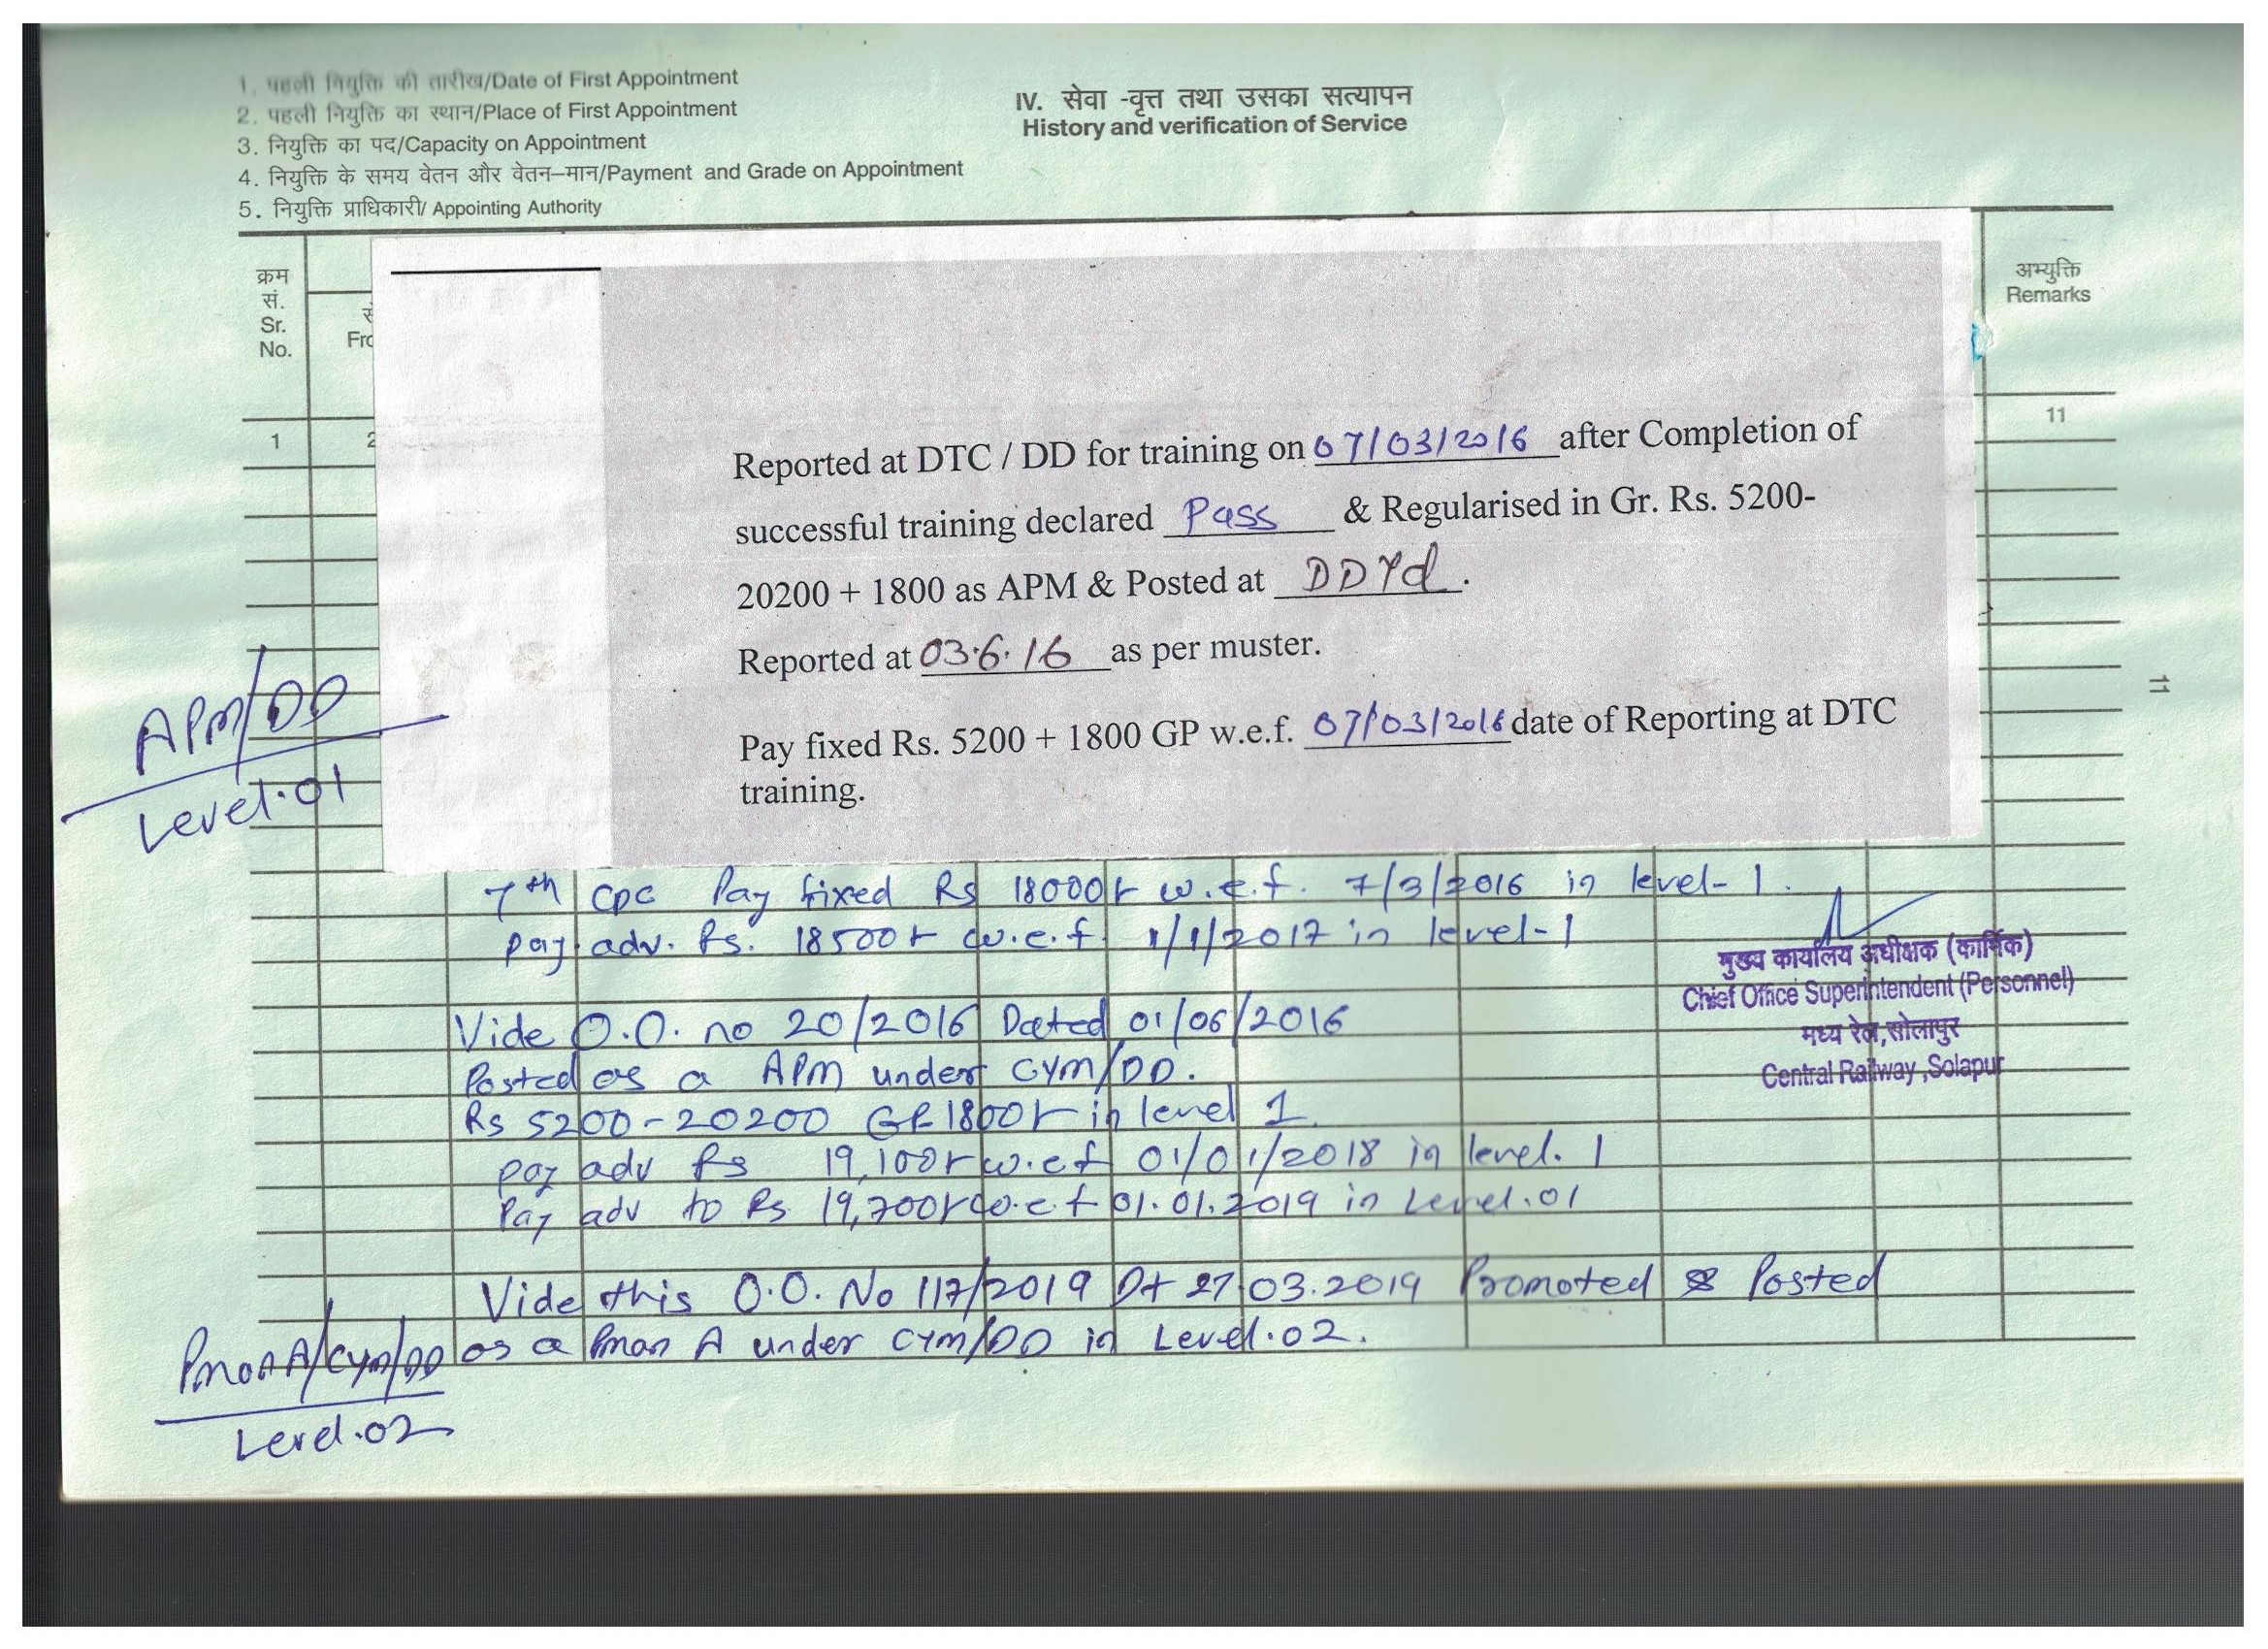 1. पहली नियुक्ति की तारीख/Date of First Appointment
2. पहली नियुक्ति का स्थान/Place of First Appointment
3. नियुक्ति का पद/Capacity on Appointment
4. नियुक्ति के समय वेतन और वेतन–मान/Payment and Grade on Appointment
5. नियुक्ति प्राधिकारी/ Appointing Authority
IV. सेवा -वृत्त तथा उसका सत्यापन
History and verification of Service
क्रम
सं.
Sr.
No.
से
Fro
अभ्युक्ति
Remarks
1
2
11
Reported at DTC / DD for training on 07/03/2016 after Completion of
successful training declared Pass & Regularised in Gr. Rs. 5200-
20200 + 1800 as APM & Posted at DDYd.
Reported at 03.6.16 as per muster.
Pay fixed Rs. 5200 + 1800 GP w.e.f. 07/03/2016 date of Reporting at DTC
training.
11
APM/DD
Level.01
7th CPC Pay fixed Rs 18000/- w.e.f. 7/3/2016 in level-1.
pay adv. Rs. 18500/- w.e.f 1/1/2017 in level-1
मुख्य कार्यालय अधीक्षक (कार्मिक)
Chief Office Superintendent (Personnel)
मध्य रेल,सोलापुर
Central Railway ,Solapur
Vide O.O. no 20/2016 Dated 01/06/2016
Posted as a APM under CYM/DD.
Rs 5200-20200 GP 1800/- in level 1
pay adv Rs 19,100/- w.e.f 01/01/2018 in level. 1
Pay adv to Rs. 19,700/- w.e.f 01.01.2019 in Level.01
Vide this O.O. No 117/2019 Dt 27.03.2019 Promoted & Posted
as a Pman A under CYM/DD in Level.02.
Pman A/CYM/DD
Level.02